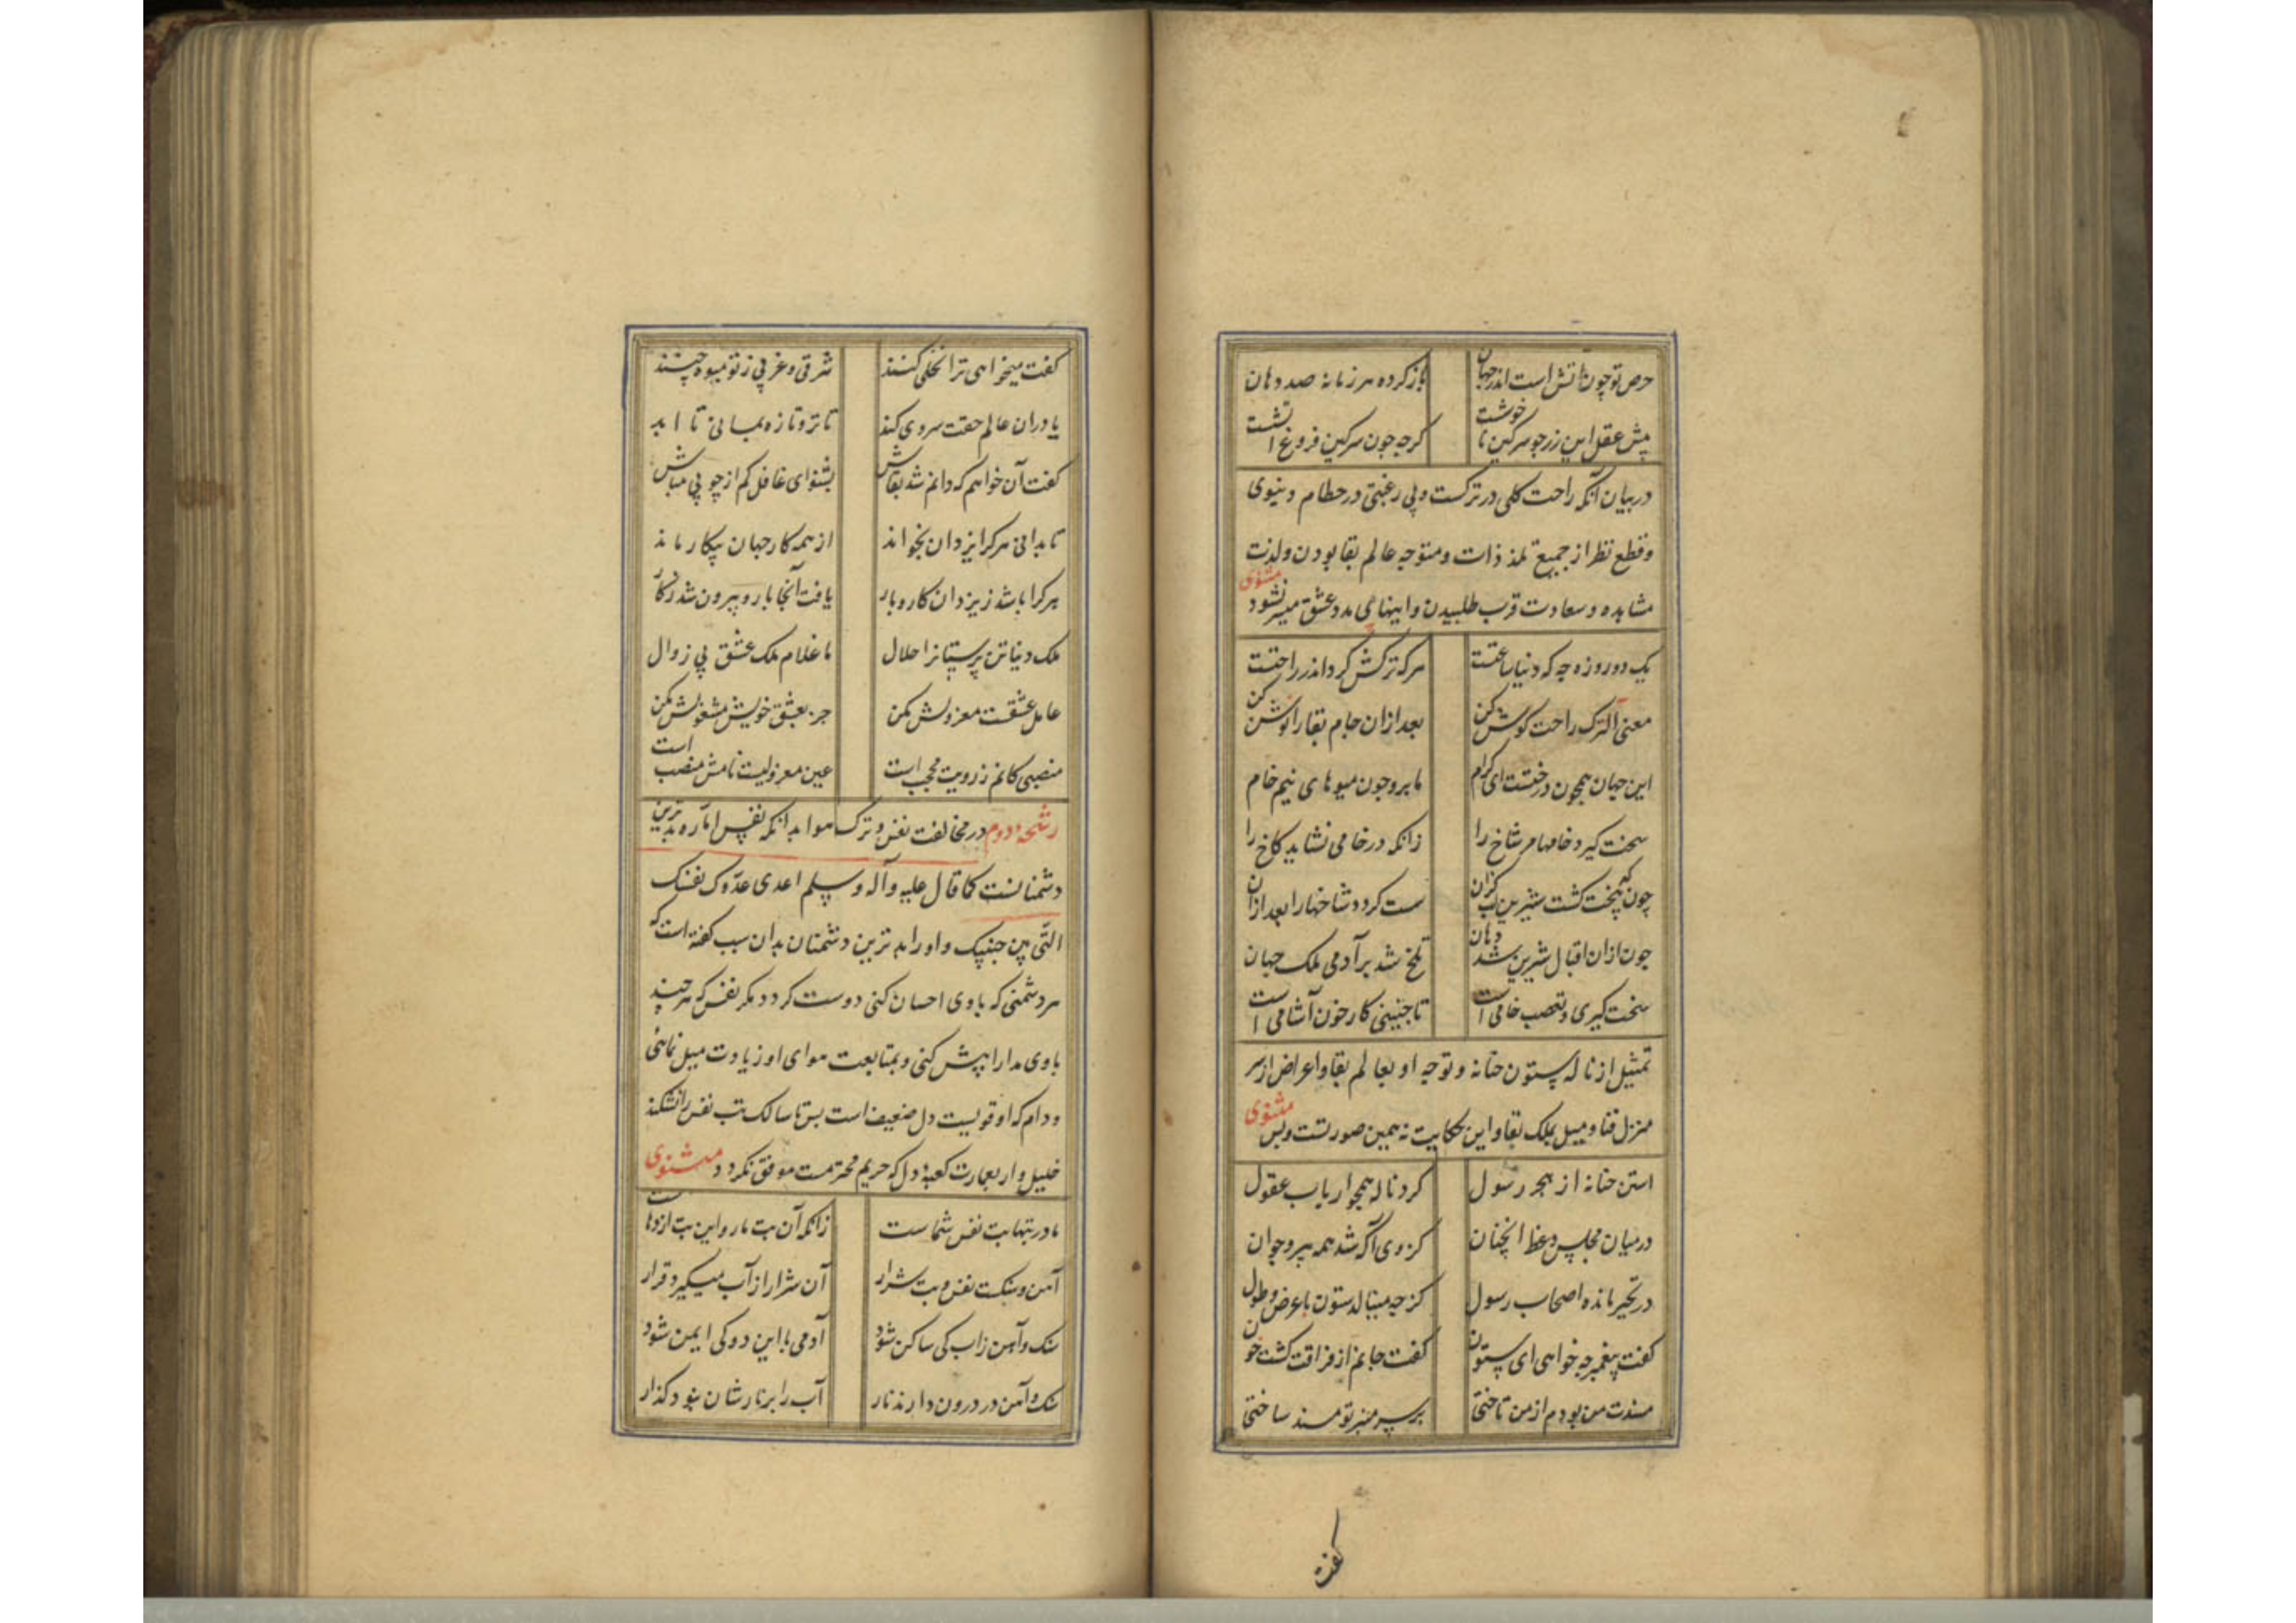 حرص تو چون آتش است اندر جهان باز کرده هر زبانه صد دهان
پیش عقل این زر چو سرکین ناخوشت کرچه چون سرکین فروغ آتشت
در بیان آنکه راحت کلی در ترکست و بی رغبتی در حطام دنیوی
و قطع نظر از جمیع تلذذات و متوجه عالم بقا بودن و لذت
مشاهده و سعادت قرب طلبیدن و اینها بی مدد عشق میسر نشود مثنوی
یک دو روزه چه که دنیا ساعتست هر که ترکش کرد اندر راحتست
معنی الترک راحت کوش کن بعد ازان جام بقا را نوش کن
این جهان همچون درختست ای کرام ما برو چون میوهای نیم خام
سخت کیرد خامها مر شاخ را زانکه در خامی نشاید کاخ را
چون که پخت کشت شیرین لب کزان سست کردد شاخها را بعد ازان
چون ازان اقبال شیرین شد دهان تلخ شد بر آدمی ملک جهان
سخت کیری و تعصب خامی است تا جنینی کار خون آشامی است
تمثیل از ناله ستون حنانه و توجه او بعالم بقا و اعراض از سر
منزل فنا و میل بملک بقا و این حکایت نه همین صورتست و بس مثنوی
استن حنانه از هجر رسول کرد ناله همچو ارباب عقول
در میان مجلس وعظ انچنان کز وی آکه شد همه پیر و جوان
در تحیر مانده اصحاب رسول کز چه مینالد ستون با عرض و طول
کفت پیغمبر چه خواهی ای ستون کفت جانم از فراقت کشت خون
مسندت من بودم از من تاختی بر سر منبر تو مسند ساختی
کفت
کفت میخواهی ترا نخلی کنند شرقی و غربی ز تو میوه چینند
یا دران عالم حقت سروی کند تا تر و تازه بمانی تا ابد
کفت آن خواهم که دائم شد بقاش بشنو ای غافل کم از چوبی مباش
تا بدانی هر کرا یزدان بخواند از همه کار جهان بیکار ماند
هر کرا باشد ز یزدان کار و بار یافت آنجا بار و بیرون شد ز کار
ملک دنیا تن پرستانرا حلال ما غلام ملک عشق بی زوال
عامل عشقست معزولش مکن جز بعشق خویش مشغولش مکن
منصبی کانم ز رویت محجب است عین معزولیست نامش منصب است
رشحه دوم در مخالفت نفس و ترک هوا بدانکه نفس اماره بدترین
دشمنانست کما قال علیه و آله و سلم اعدی عدوک نفسک
التی بین جنبیک و او را بدترین دشمنان بدان سبب کفته است که
هر دشمنی که با وی احسان کنی دوست کردد مکر نفس که هر چند
با وی مدارا بیش کنی و بمتابعت هوای او زیادت میل نمائی
و دام که او قویست دل ضعیف است پس تا سالک بت نفس را نشکند
خلیل وار بعمارت کعبه دل که حریم محترمست موفق نکردد مثنوی
مادر بتها بت نفس شماست زانکه آن بت مار و این بت اژدهاست
آهن و سنکست نفس و بت شرار آن شرار از آب میکیرد قرار
سنک و آهن زاب کی ساکن شود آدمی با این دو کی ایمن شود
سنک و آهن در درون دارند نار آب را بر نارشان نبود کذار